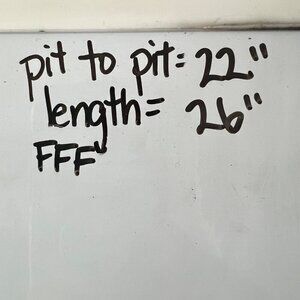 pit to pit= 22"
length= 26"
FFF